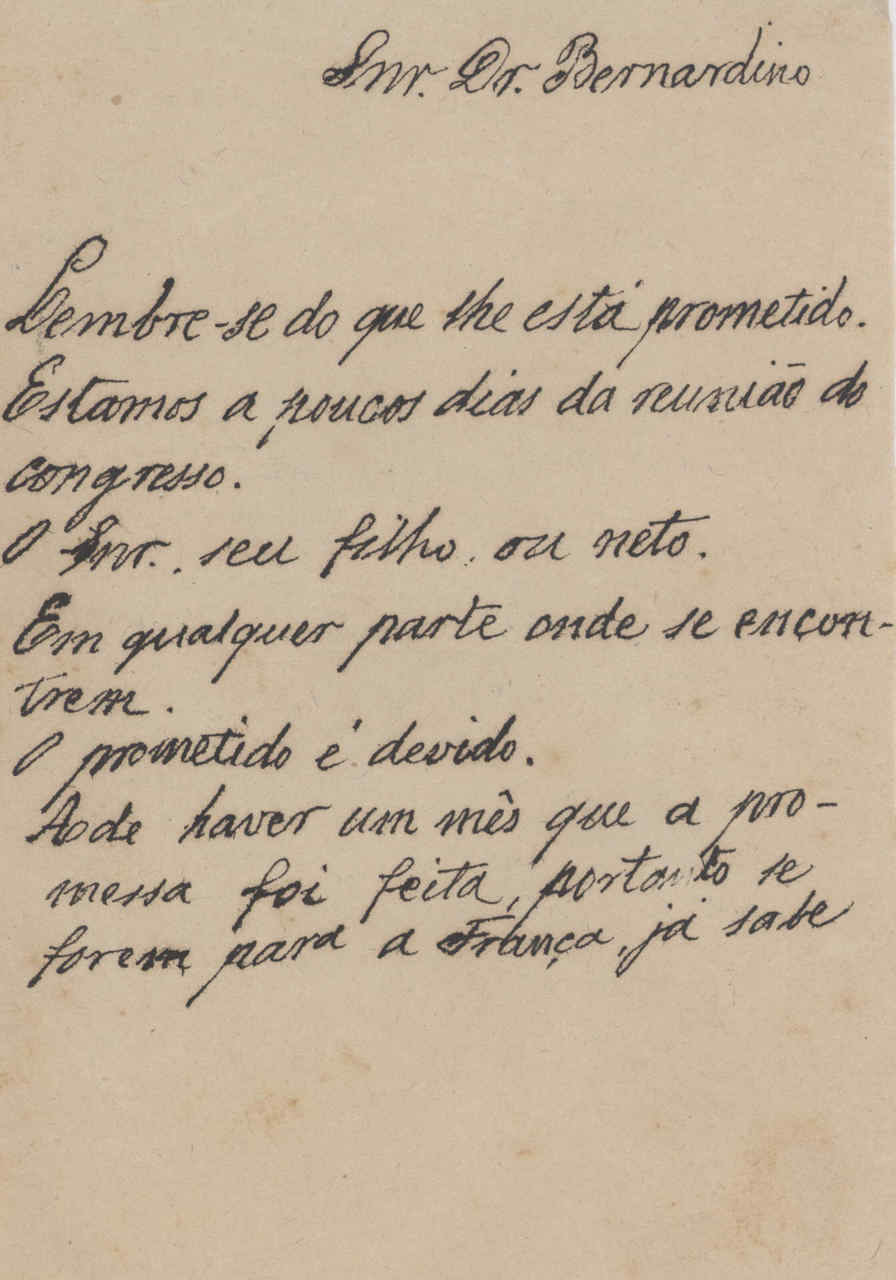 Snr. Dr. Bernardino
Lembre-se do que lhe está prometido.
Estamos a poucos dias da reunião do
congresso.
O Snr. seu filho. ou neto.
Em qualquer parte onde se encon-
trem.
O prometido é devido.
Ade haver um mês que a pro-
messa foi feita, portanto se
forem para a França, já sabe